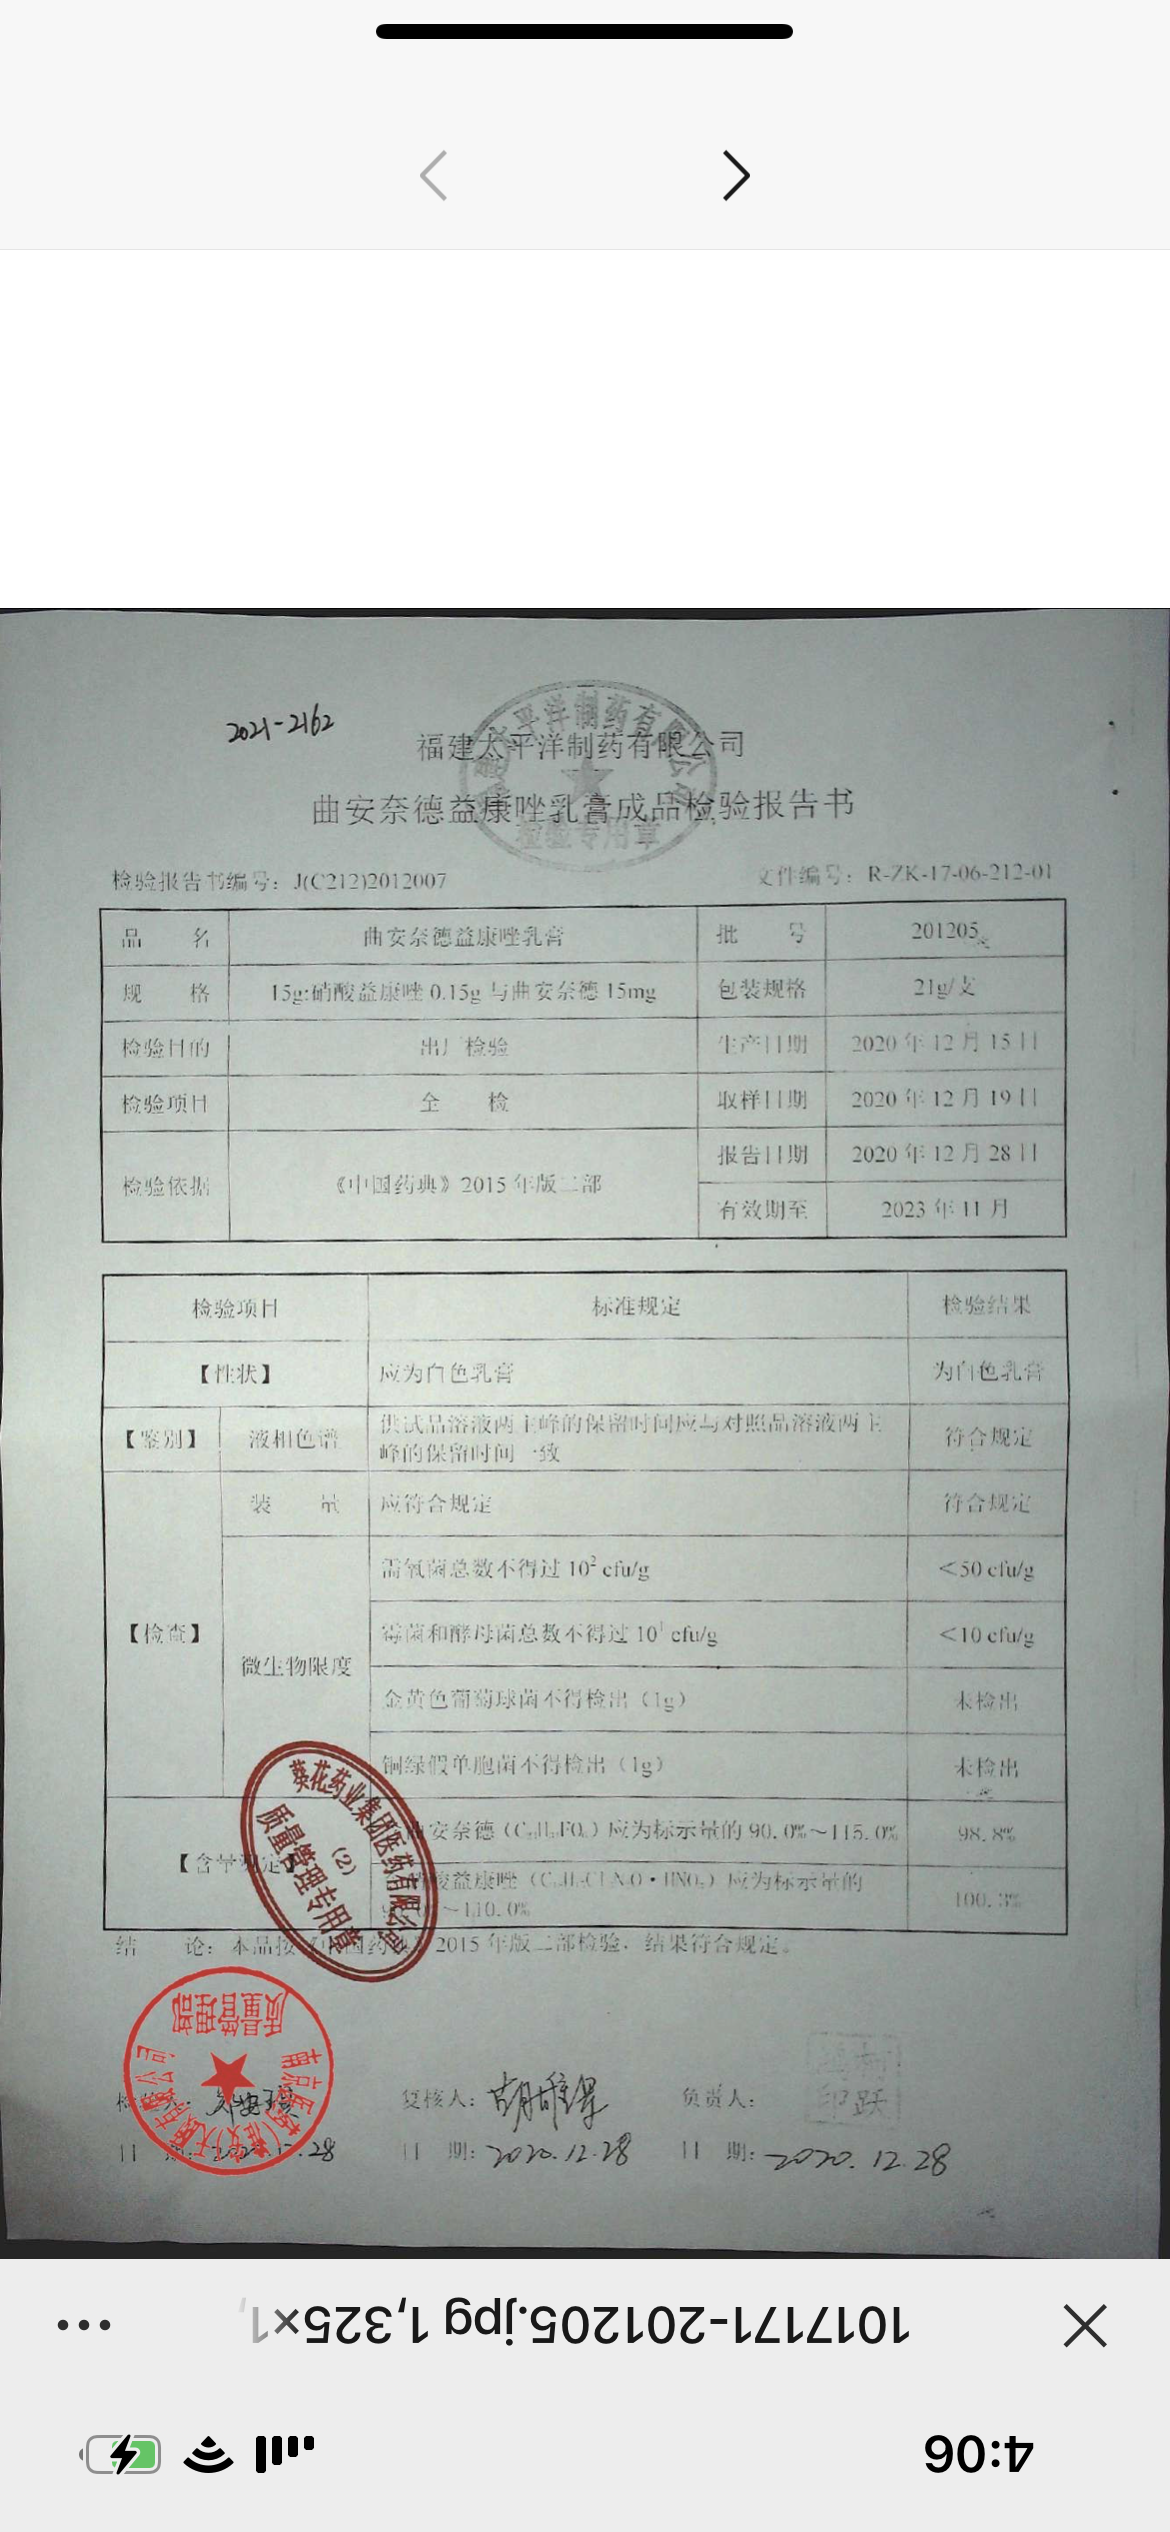 2021-2162
福建太平洋制药有限公司
曲安奈德益康唑乳膏成品检验报告书
检验专用章
检验报告书编号：J(C212)2012007 文件编号：R-ZK-17-06-212-01
品 名 曲安奈德益康唑乳膏 批 号 201205
规 格 15g:硝酸益康唑 0.15g 与曲安奈德 15mg 包装规格 21g/支
检验目的 出厂检验 生产日期 2020 年 12 月 15 日
检验项目 全 检 取样日期 2020 年 12 月 19 日
检验依据 《中国药典》2015 年版二部 报告日期 2020 年 12 月 28 日
有效期至 2023 年 11 月
检验项目 标准规定 检验结果
【性状】 应为白色乳膏 为白色乳膏
【鉴别】 液相色谱 供试品溶液两主峰的保留时间应与对照品溶液两主
峰的保留时间一致 符合规定
装 量 应符合规定 符合规定
【检查】 微生物限度 需氧菌总数不得过 10² cfu/g <50 cfu/g
霉菌和酵母菌总数不得过 10¹ cfu/g <10 cfu/g
金黄色葡萄球菌不得检出（1g） 未检出
铜绿假单胞菌不得检出（1g） 未检出
【含量测定】 曲安奈德 应为标示量的 90.0%～115.0% 98.8%
硝酸益康唑 应为标示量的
～110.0% 100.3%
葵花药业集团医药有限公司
(2)
质量管理专用章
结 论：本品按《中国药典》2015 年版二部检验，结果符合规定。
质量管理部
检验人： 复核人： 负责人：
印跃
日 期： 日 期：2020.12.28 日 期：2020.12.28
1017171-201205.jpg 1,325×1,
4:06